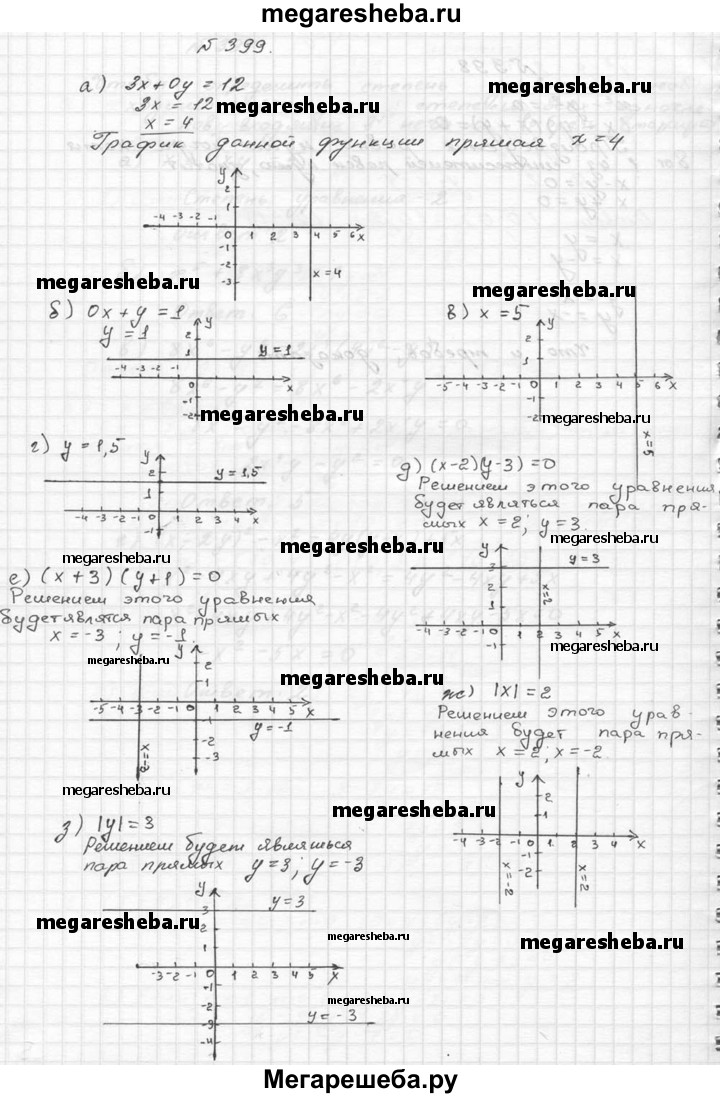 megaresheba.ru
№ 399.
а) 3x + 0y = 12
3x = 12
megaresheba.ru
x = 4
График данной функции прямая x = 4
y
2
1
-4 -3 -2 -1 0 1 2 3 4 5 6 x
-1
-2
-3
x = 4
megaresheba.ru
megaresheba.ru
б) 0x + y = 1
y = 1
y
2
1
y = 1
-4 -3 -2 -1
0
x
-1
-2
megaresheba.ru
в) x = 5
y
2
1
-5 -4 -3 -2 -1 0 1 2 3 4 5 6 x
-1
-2
x = 5
г) y = 1,5
y
2
y = 1,5
1
-4 -3 -2 -1 0 1 2 3 4 5 x
-1
megaresheba.ru
д) (x-2)(y-3) = 0
Решением этого уравнения
будет являться пара пря-
мых x = 2; y = 3.
megaresheba.ru
y
y = 3
2
1
x = 2
-4 -3 -2 -1 0 1 2 3 4 5 x
-1
megaresheba.ru
е) (x + 3)(y + 1) = 0
Решением этого уравнения
будет являтся пара прямых
x = -3 ; y = -1.
megaresheba.ru
megaresheba.ru
y
2
1
-5 -4 -3 -2 -1 0 1 2 3 4 5 x
y = -1
-2
-3
x = -3
megaresheba.ru
ж) |x| = 2
Решением этого урав
нения будет пара пря-
мых x = 2; x = -2.
y
2
1
-4 -3 -2 -1 0 1 2 3 4 x
-1
-2
x = -2
x = 2
megaresheba.ru
з) |y| = 3
Решением будет являться
пара прямых y = 3; y = -3
y
3
y = 3
2
1
-3 -2 -1 0 1 2 3 4 5 x
-1
-2
-3
y = -3
-4
megaresheba.ru
megaresheba.ru
megaresheba.ru
megaresheba.ru
Мегарешеба.ру